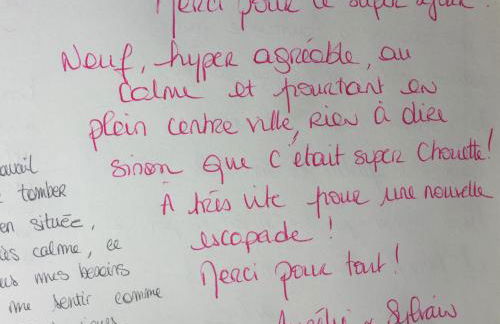 Merci pour ce super
Neuf, hyper agréable, au
calme et pourtant en
plein centre ville, rien à dire
sinon que c'était super chouette!
À très vite pour une nouvelle
escapade !
Merci pour tout !
Sylvain
tomber
en située,
calme, ce
mes besoins
me sentir comme